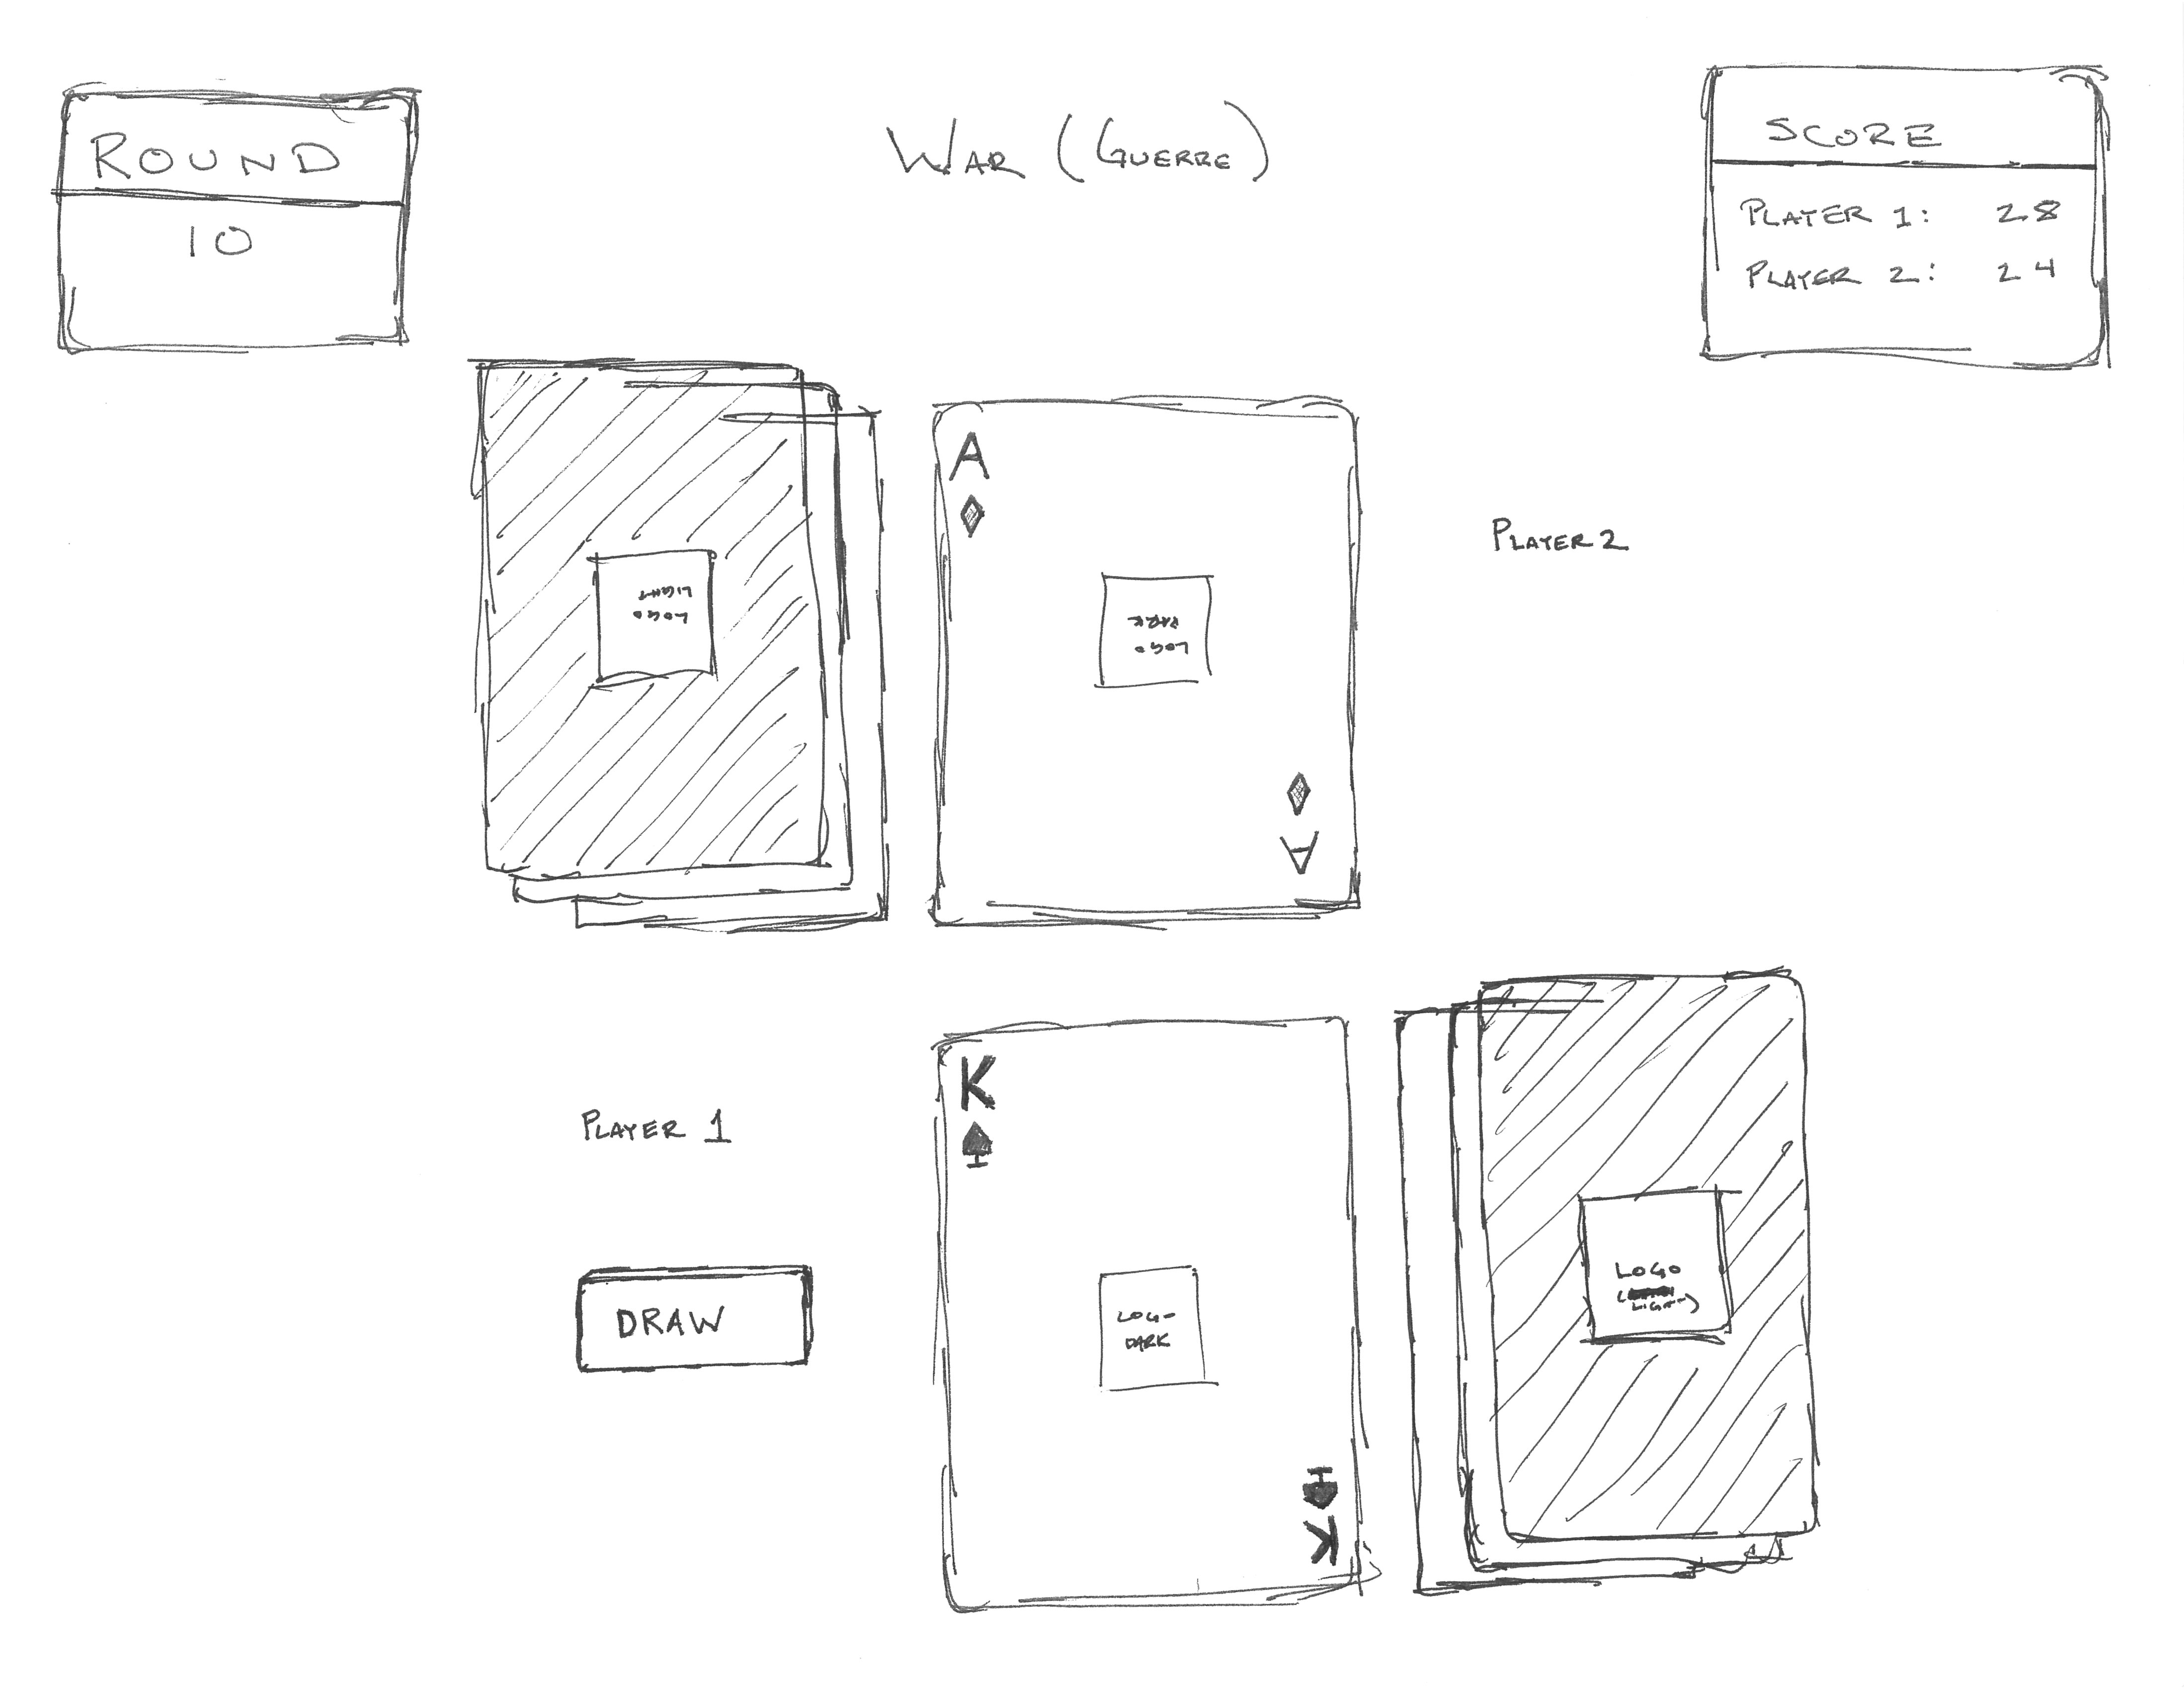 ROUND
10
WAR (GUERRE)
SCORE
PLAYER 1: 28
PLAYER 2: 24
LOGO
LIGHT
A
LOGO
DARK
A
PLAYER 2
PLAYER 1
DRAW
K
LOGO
DARK
K
LOGO
LIGHT)